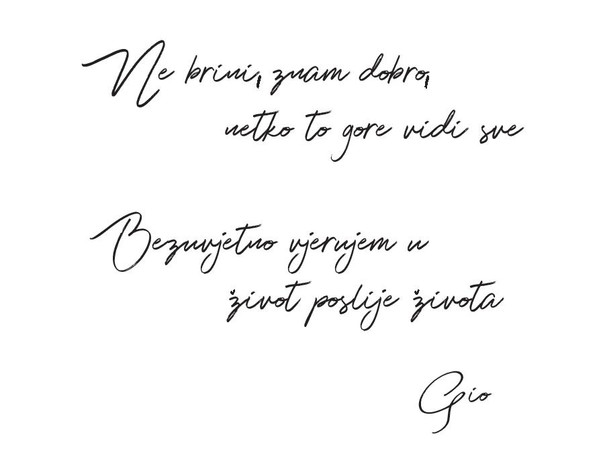 Ne brini, znam dobro,
netko to gore vidi sve
Bezuvjetno vjerujem u
život poslije života
Gio